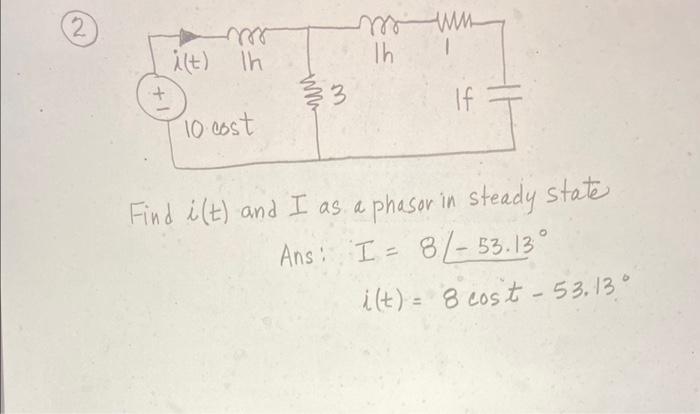 2
i(t) 1h 1h 1
+
-
3 1f
10 cost
Find i(t) and I as a phasor in steady state
Ans: I = 8/-53.13°
i(t) = 8 cos t - 53.13°